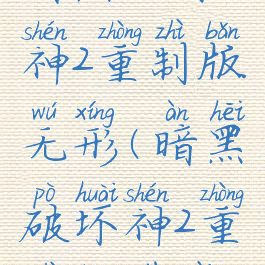 shén zhòng zhì bǎn
神2重制版
wú xíng àn hēi
无形(暗黑
pò huài shén zhòng
破坏神2重